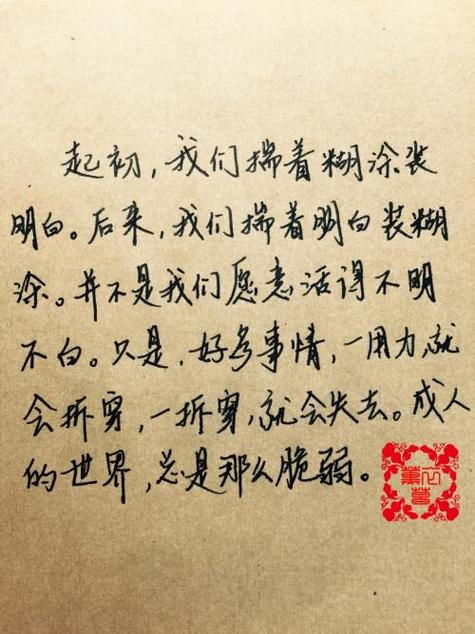 起初，我们揣着糊涂装
明白。后来，我们揣着明白装糊
涂。并不是我们愿意活得不明
不白。只是，好多事情，一用力，就
会拆穿，一拆穿，就会失去。成人
的世界，总是那么脆弱。